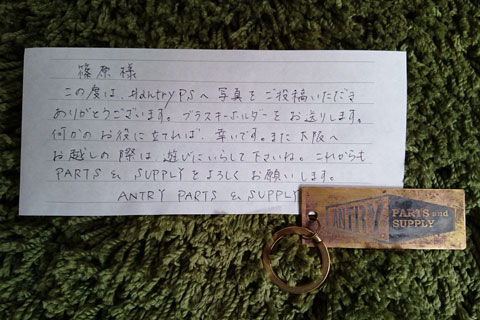 篠原様
この度は、#antryPSへ写真をご投稿いただき
ありがとうございます。ブラスキーホルダーをお送りします。
何かのお役に立てれば、幸いです。また大阪へ
お越しの際は遊びにいらして下さいね。これからも
PARTS & SUPPLYをよろしくお願いします。
ANTRY PARTS & SUPPLY
ANTRY
PARTS and
SUPPLY